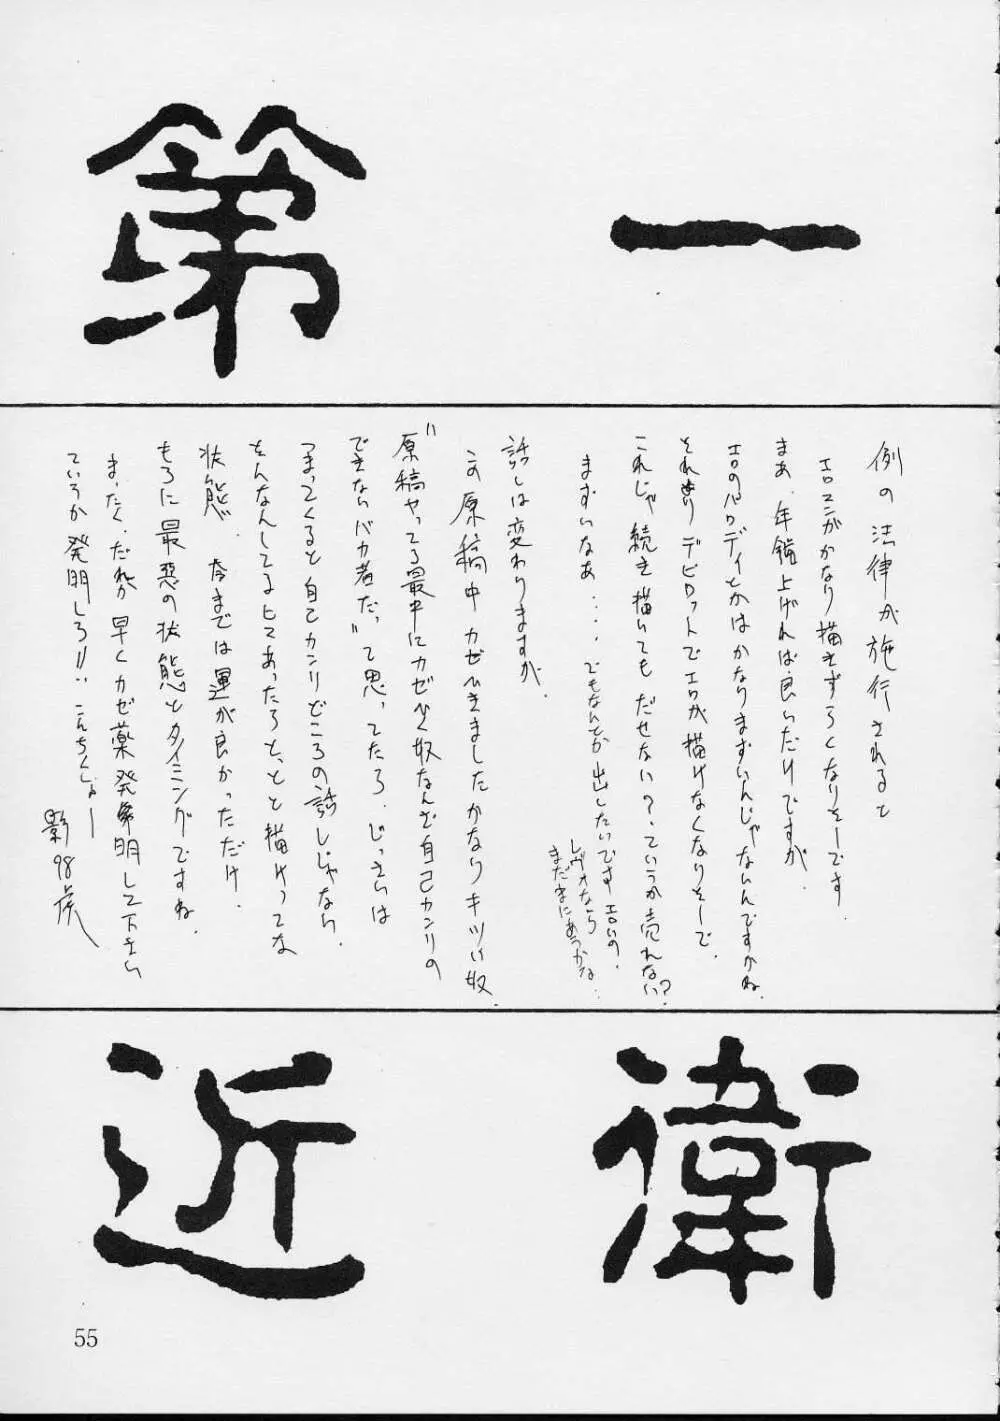 第一
例の法律が施行されると
エロマンガかなり描きずらくなりそーです
まあ、年齢上げれば良いだけですが
エロのパロディとかはかなりまずいんじゃないんですかね.
それよりデビロットでエロが描けなくなりそーで
これじゃ続き描いてもだせない？ていうか売れない？
まずいなあ....でもなんとか出したいですエロいの.
レヴォなら
まだまにあうかな..
話しは変わりますが.
この原稿中カゼひきましたかなりキツい奴.
"原稿やってる最中にカゼひく奴なんぞ自己カンリの
できないバカ者だっ"て思ってたら.じっさいは
つまってくると自己カンリどころの話しじゃなし.
そんなんしてるヒマあったらとっとと描けってな
状態. 今までは運が良かっただけ.
もろに最悪の状態とタイミングですね.
まったく.だれか早くカゼ薬発明して下さい
ていうか発明しろ!! こんちくしょー
影98
近衛
55